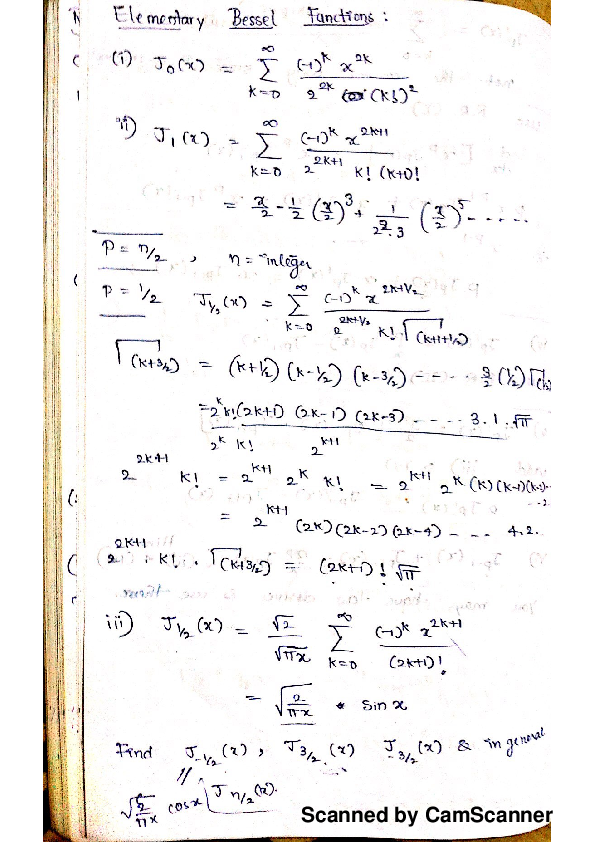 Elementary Bessel Functions :
(i) J₀(x) = ∑_{k=0}^{∞} (-1)^k x^{2k} / 2^{2k} (k!)²
ii) J₁(x) = ∑_{k=0}^{∞} (-1)^k x^{2k+1} / 2^{2k+1} k! (k+1)!
= x/2 - 1/2 (x/2)³ + 1/(2².3) (x/2)⁵ - - - - -
P = n/2 , n = integer
P = 1/2 J_{1/2}(x) = ∑_{k=0}^{∞} (-1)^k x^{2k+1/2} / 2^{2k+1/2} k! Γ(k+1+1/2)
Γ(k+3/2) = (k+1/2) (k-1/2) (k-3/2) - - - - 3/2 (1/2) Γ(1/2)
= 2^k k! (2k+1) (2k-1) (2k-3) - - - - - 3.1.√π / 2^k k! 2^{k+1}
2^{2k+1} k! = 2^{k+1} 2^k k! = 2^{k+1} 2^k (k)(k-1)(k-2)- - -2
= 2^{k+1} (2k)(2k-2)(2k-4) - - - 4.2.
2^{2k+1} . k! . Γ(k+3/2) = (2k+1)! √π
iii) J_{1/2}(x) = √2/√πx ∑_{k=0}^{∞} (-1)^k x^{2k+1} / (2k+1)!
= √(2/πx) * sin x
Find J_{-1/2}(x) , J_{3/2}(x) J_{-3/2}(x) & in general
//
√(2/πx) cosx J_{n/2}(x).
Scanned by CamScanner